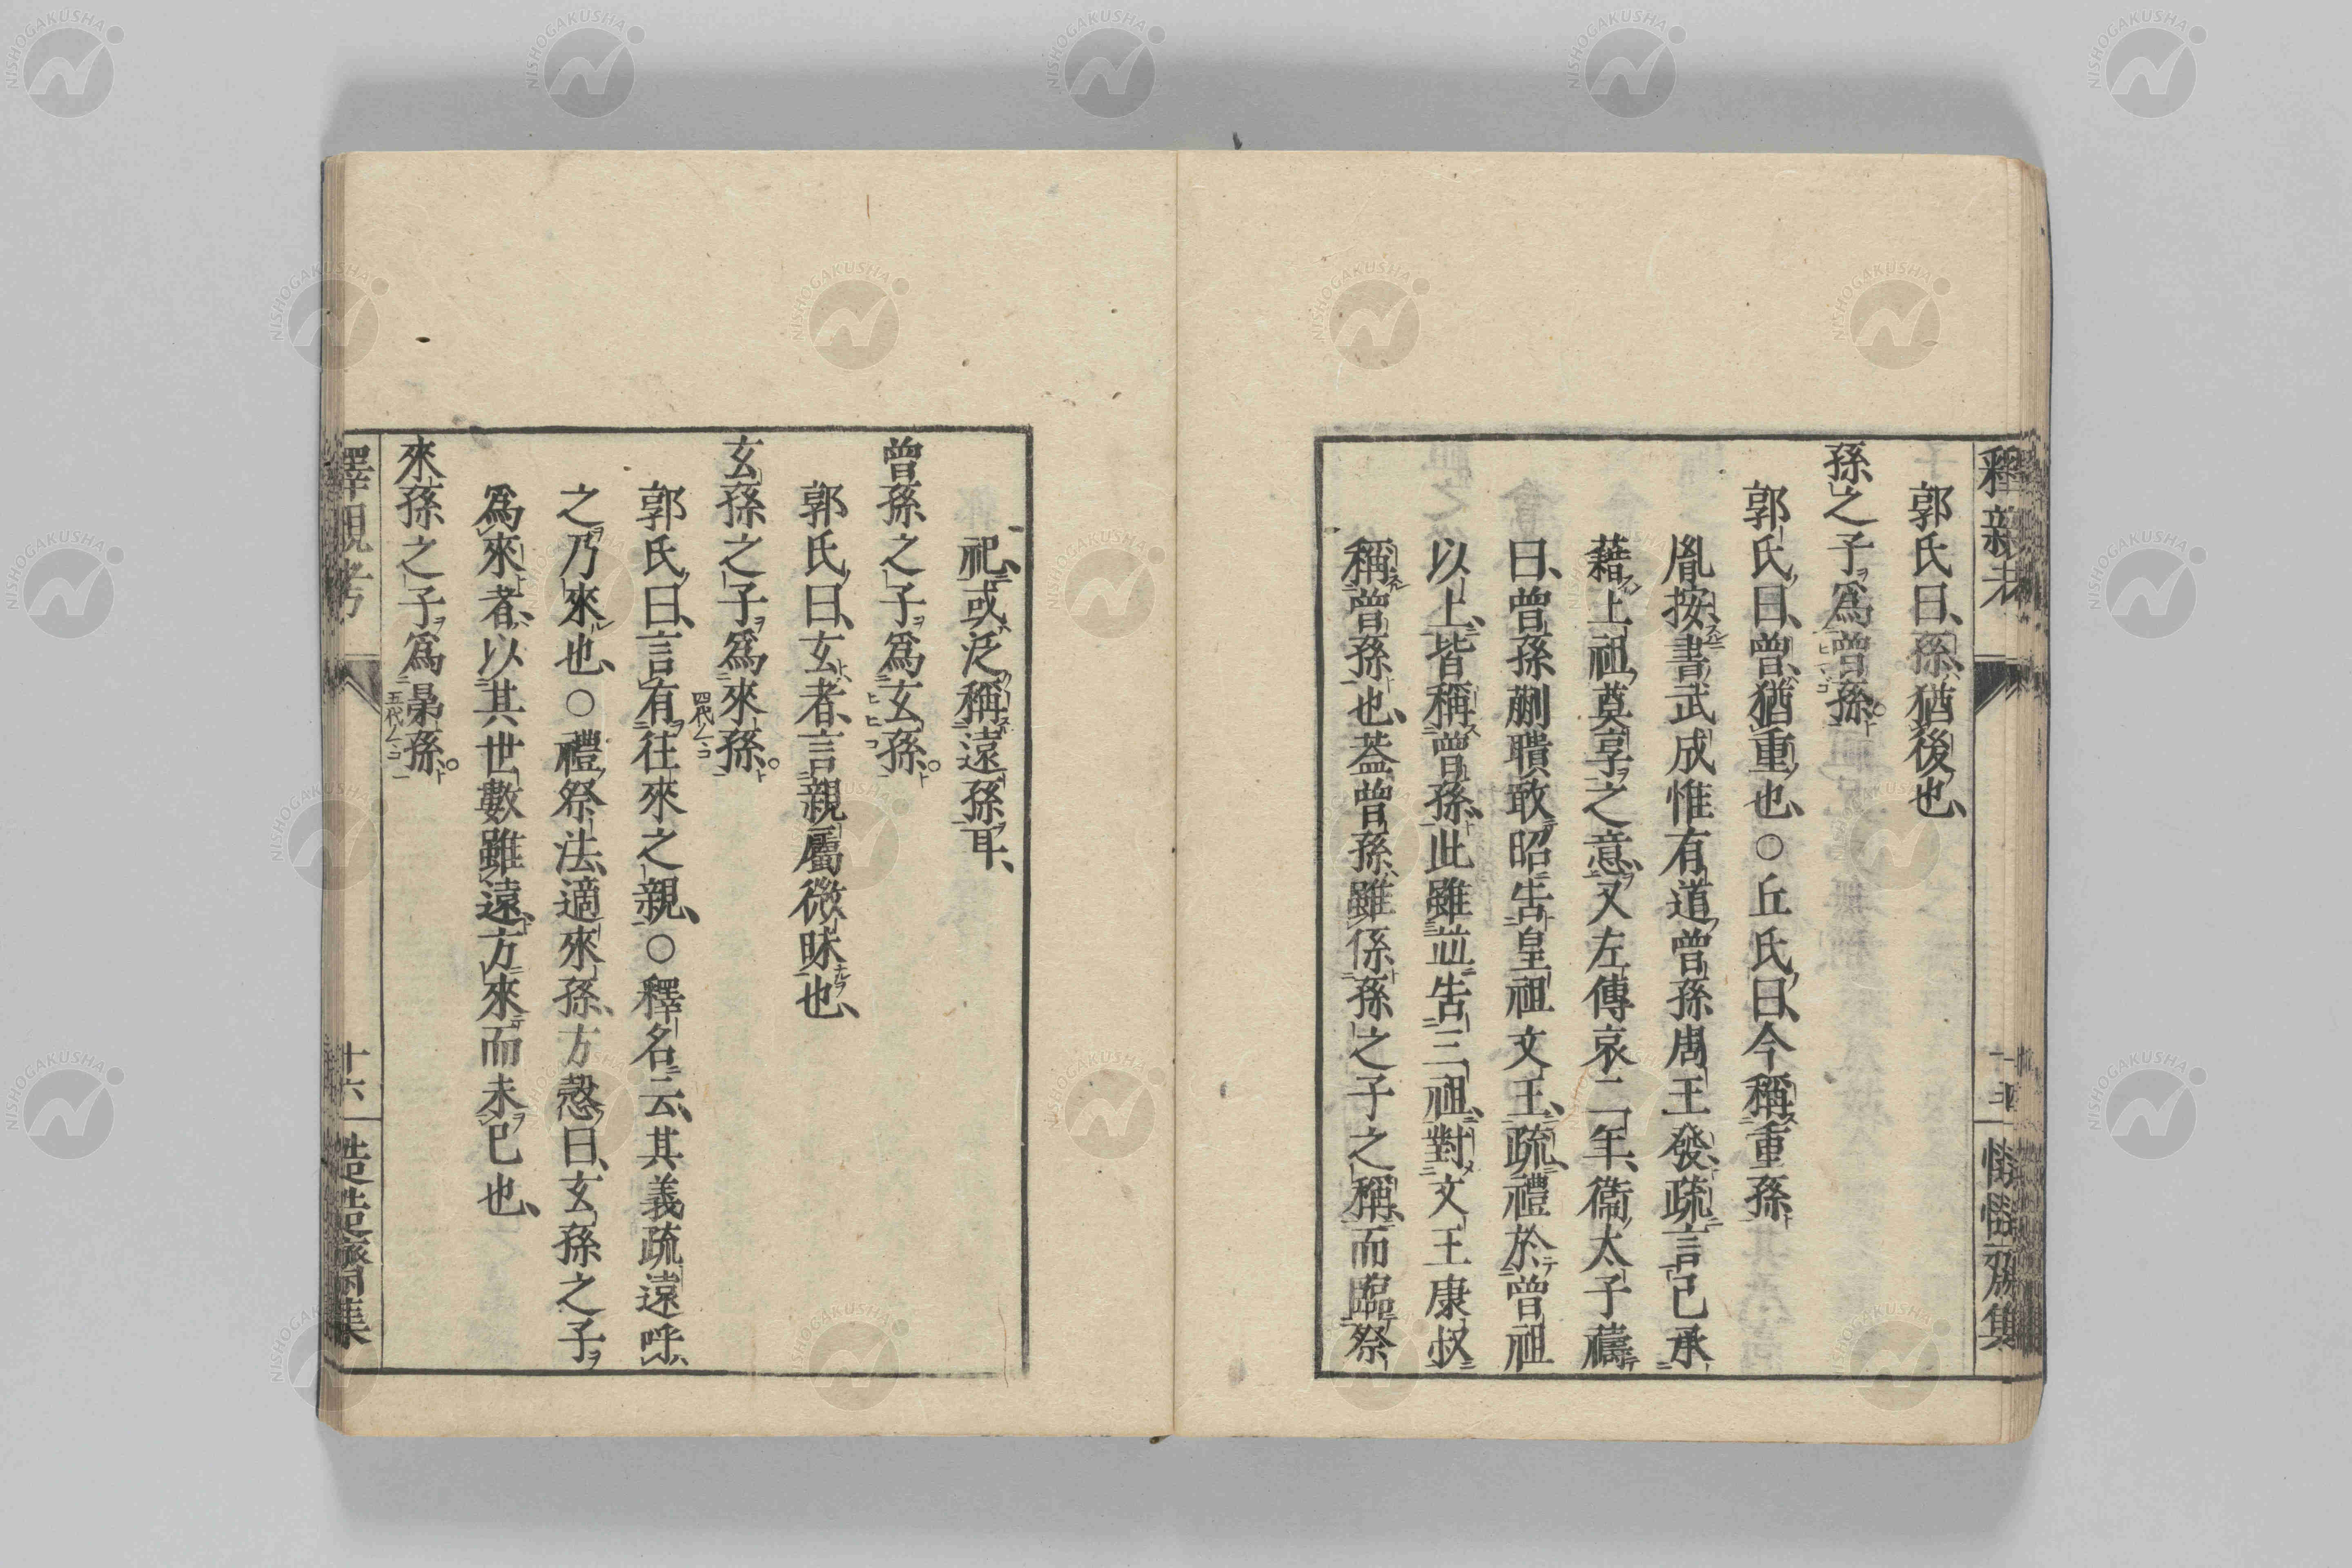 郭氏曰、孫、猶後也、
孫之子爲曾孫。
郭氏曰、曾、猶重也、○丘氏曰、今稱重孫
胤按書武成惟有道曾孫周王發、疏言已承
藉上祖、奠享之意、又左傳哀二年、衞太子禱
曰、曾孫蒯聵敢昭告皇祖文王、疏、禮於曾祖
以上、皆稱曾孫、此雖並告三祖、對文王康叔
稱曾孫也、蓋曾孫、雖係孫之子之稱、而臨祭
祀、或泛稱遠孫耳、
曾孫之子爲玄孫。
郭氏曰、玄者、言親屬微昧也、
玄孫之子爲來孫。
郭氏曰、言有往來之親、○釋名云、其義疏遠呼
之乃來也、○禮祭法、適來孫、方慤曰、玄孫之子
爲來者、以其世數雖遠、方來而未已也、
來孫之子爲晜孫。
釋親考
十六
NISHOGAKUSHA